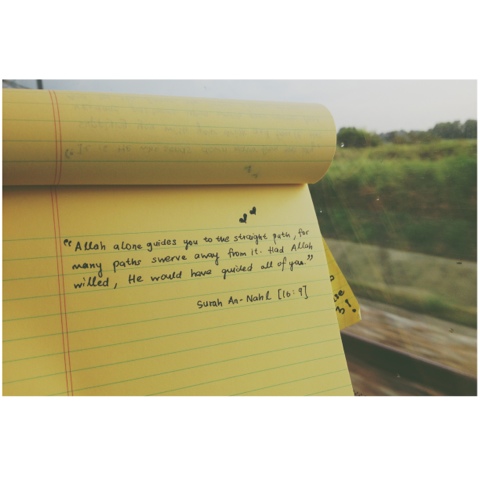 "Allah alone guides you to the straight path, for
many paths swerve away from it. Had Allah
willed, He would have guided all of you."
Surah An-Nahl [16:9]